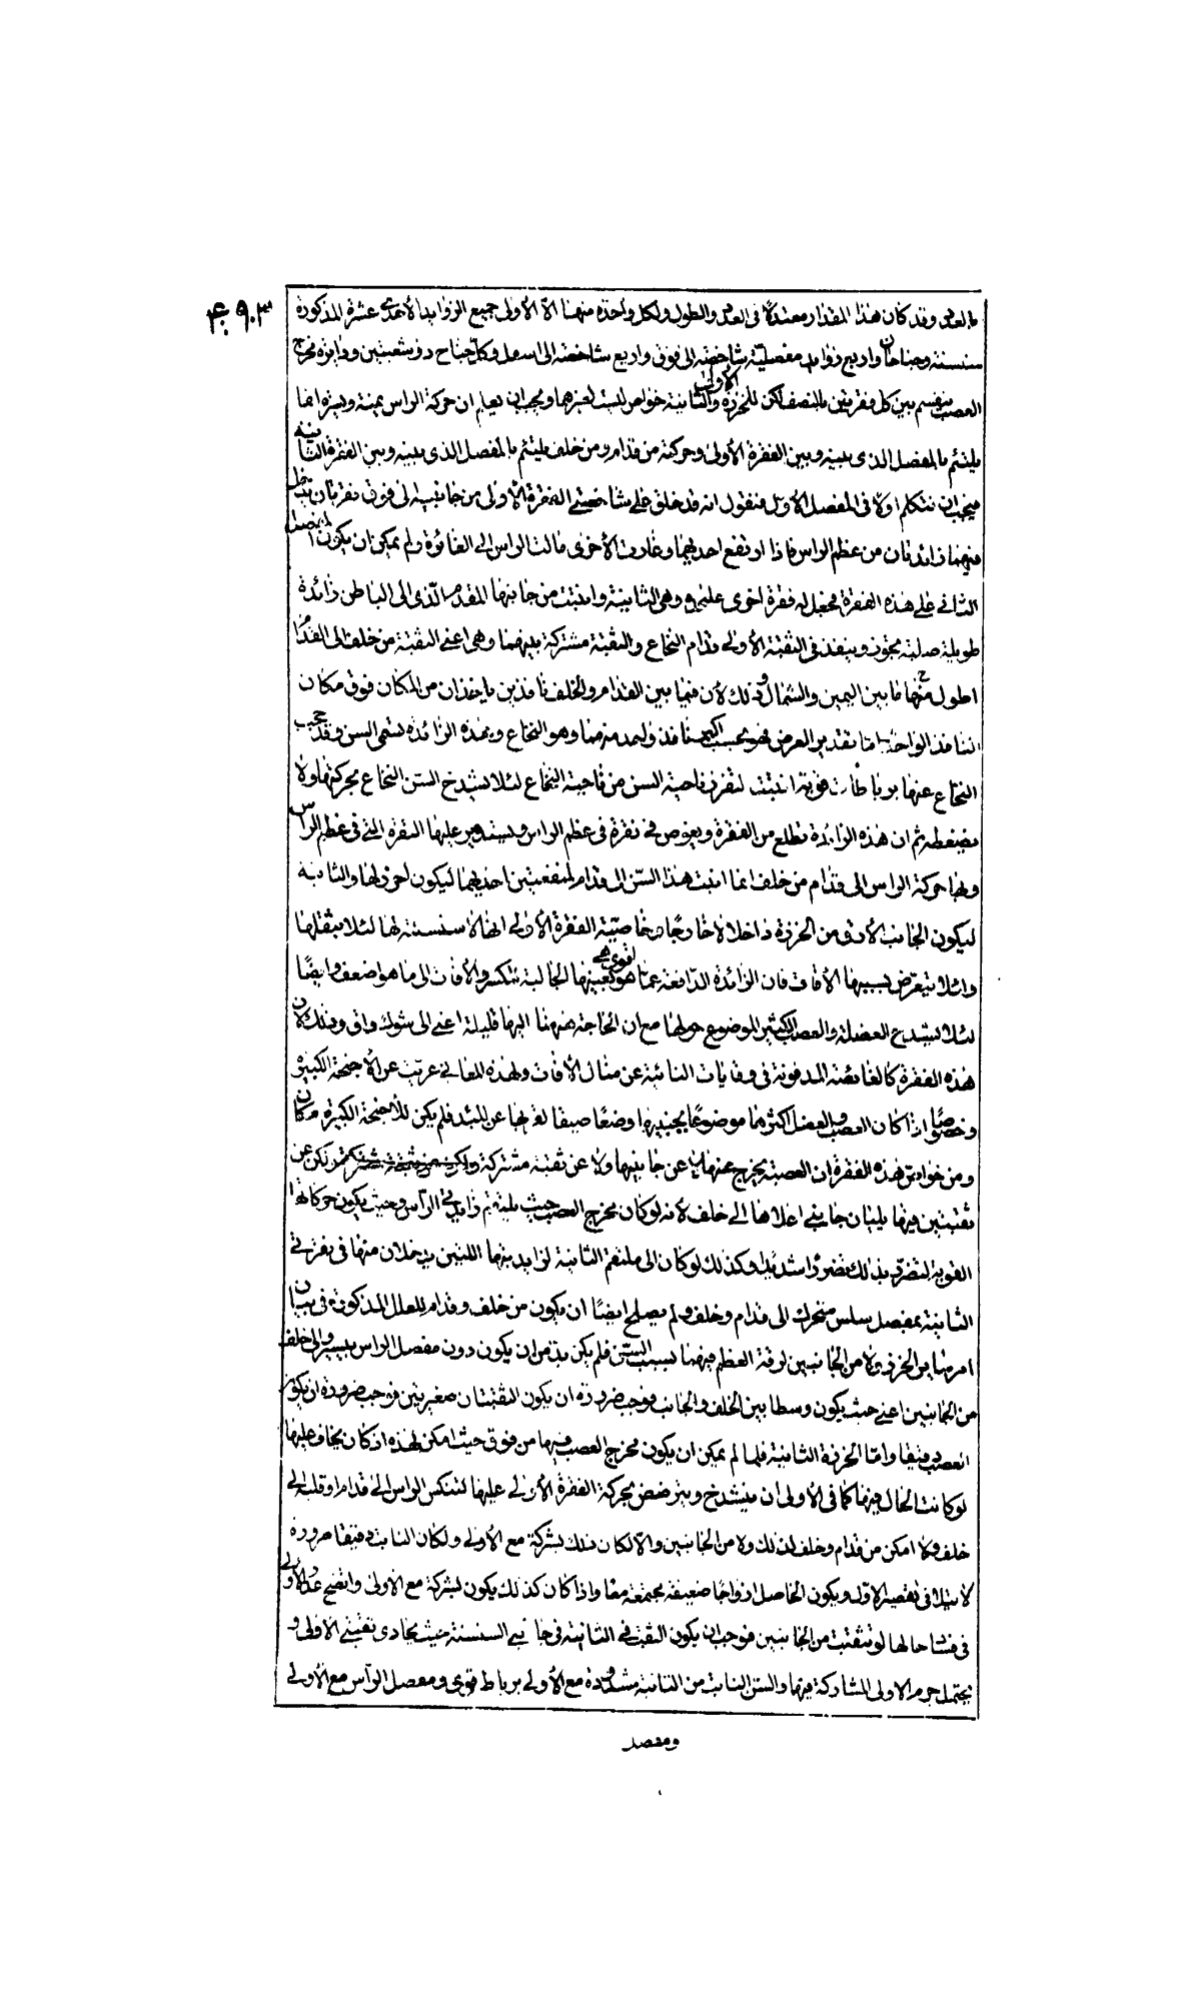 بالعرض وقد كان هذا المقدار معتدلًا فى العرض والطول ولكل واحدة منهما الا الأولى جميع الزوايد الأحدى عشرة المذكورة
سنسنة وجناحان واربع زوايد مفصلية شاخصة الى فوق واربع شاخصة الى اسفل وكل جناح ذو شعبتين ودايرة مخرج
العصب ينقسم بين كل فقرتين بالنصف لكن للخرزة الأولى والثانية خواص ليست لغيرهما ويجب ان نعلم ان حركة الراس يمنة ويسرة انما
يلتئم بالمفصل الذى بينه وبين الفقرة الأولى وحركته من قدام ومن خلف يلتئم بالمفصل الذى بينه وبين الفقرة الثانية
فيجب ان نتكلم اولًا فى المفصل الأول فنقول انه قد خلق على شاخصتى الفقرة الأولى من جانبيه الى فوق نقرتان يدخل
فيهما زائدتان من عظم الراس فاذا ارتفع احديهما وغارت الأخرى مالت الراس الى الغائرة ولم يمكن ان يكون المفصل
الثانى على هذه الفقرة فجعل له فقرة اخرى على وهى الثانية وانبتت من جانبها المقدم الذى الى الباطن زائدة
طويلة صلبة تجوز وينفذ فى الثقبة الأولى قدام النخاع والثقبة مشتركة بينهما وهى اعنى الثقبة من خلف الى القدام
اطول منها ما بين اليمين والشمال وذلك لأن فيما بين القدام والخلف نافذين ياخذان من المكان فوق مكان
النافذ الواحد واما تقدير العرض فهو بحسب اكبر نافذ واحد منهما وهو النخاع وهذه الزائدة تسمى السن وقد حجب
النخاع عنها برباطات قوية انبتت لتفرز ناحية السن من ناحية النخاع لئلا يشدخ السن النخاع بحركتها ولا
يضغطه ثم ان هذه الزائدة تطلع من الفقرة ويغوص فى نقرة فى عظم الراس ويستدير عليها النقرة التى فى عظم الراس
وبها حركة الراس الى قدام من خلف انما انبت هذا السن الى قدام لمنفعتين احديهما ليكون احرز لها والثانية
ليكون الجانب الأرق من الخرزة داخلا لا خارجًا وخاصية الفقرة الأولى انها لا سنسنة لها لئلا يثقلها
ولئلا يتعرض بسببها الأفات فان الزائدة الدافعة عما هو اقوى هى بعينها الجالبة للكسر والأفات الى ما هو اضعف وايضًا
لئلا يشدخ العضلة والعصب الكثير الموضوع حولها مع ان الحاجة ههنا اليها قليلة اعنى الى شوك واق وذلك لأن
هذه الفقرة كالغائصة المدفونة فى وقايات النائية عن منال الأفات ولهذه المعانى عريت عن الأجنحة الكبيرة
وخصوصًا اذا كان العصب والعضل اكثرها موضوعًا بجنبيها وضعًا ضيقًا لقربها عن المبدء فلم يكن للأجنحة الكبيرة مكان
ومن خواص هذه الفقرة ان العصبة يخرج عنها لا عن جانبيها ولا عن ثقبة مشتركة ولكن عن
ثقبتين فيها يليان جانبى اعلاها الى خلف لأنه لو كان مخرج العصب حيث يلتقم زايدتى الرأس وحيث يكون حركاتها
القوية لتضرر بذلك تضررًا شديدًا وكذلك لو كان الى ملتقم الثانية لزايدتيها اللتين يدخلان منها فى نقرتى
الثانية بمفصل سلس متحرك الى قدام وخلف ولم يصلح ايضًا ان يكون من خلف وقدام للعلل المذكورة فى بيان
امر سائر الخرز ولا من الجانبين لرقة العظم فيهما بسبب السن فلم يكن بد من ان يكون دون مفصل الراس بيسير والى خلف
من الجانبين اعنى حيث يكون وسطا بين الخلف والجانب فوجب ضرورة ان يكون الثقبتان صغيرتين فوجب ضرورة ان يكون
العصب دقيقا واما الخرزة الثانية فلما لم يمكن ان يكون مخرج العصب فيها من فوق حيث امكن لهذه اذ كان يخاف عليها
لو كانت الحال فيها كما فى الأولى ان ينشدخ ويترضض بحركة الفقرة الأولى عليها لتنكس الراس الى قدام او قلبه الى
خلف ولا امكن من قدام وخلف لذلك ولا من الجانبين والا لكان ذلك بشركة مع الأولى ولكان النابت دقيقا ضرورة
لا يتلافى تقصير الاول ويكون الحاصل ازواجًا ضعيفة مجتمعة معًا واذا كان كذلك يكون بشركة مع الاولى واتضح عذر الأولى
فى فساد حالها لو تثقبت من الجانبين فوجب ان يكون الثقب فى الثانية فى جانبى السنسنة حيث يحاذى ثقبتى الاولى و
يحتمل جرم الاولى المشاركة فيها والسن النابت من الثانية مشدودة مع الأولى برباط قوى ومفصل الرأس مع الأولى
ومفصل